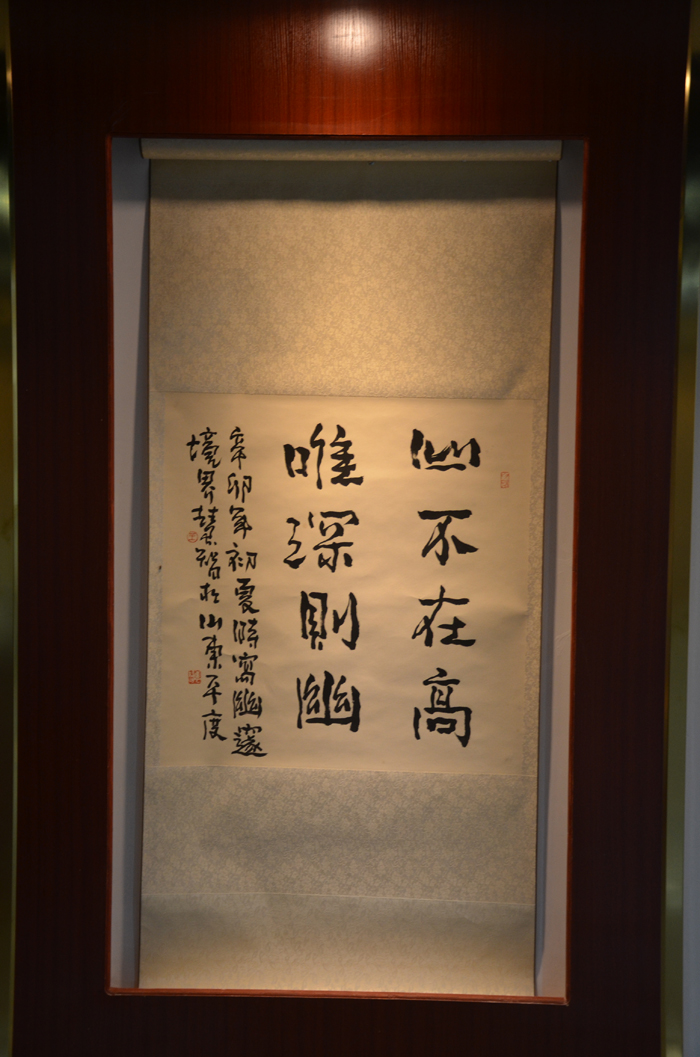 山不在高
唯深則幽
辛卯年初夏時寫幽邃
境界智於山東平度